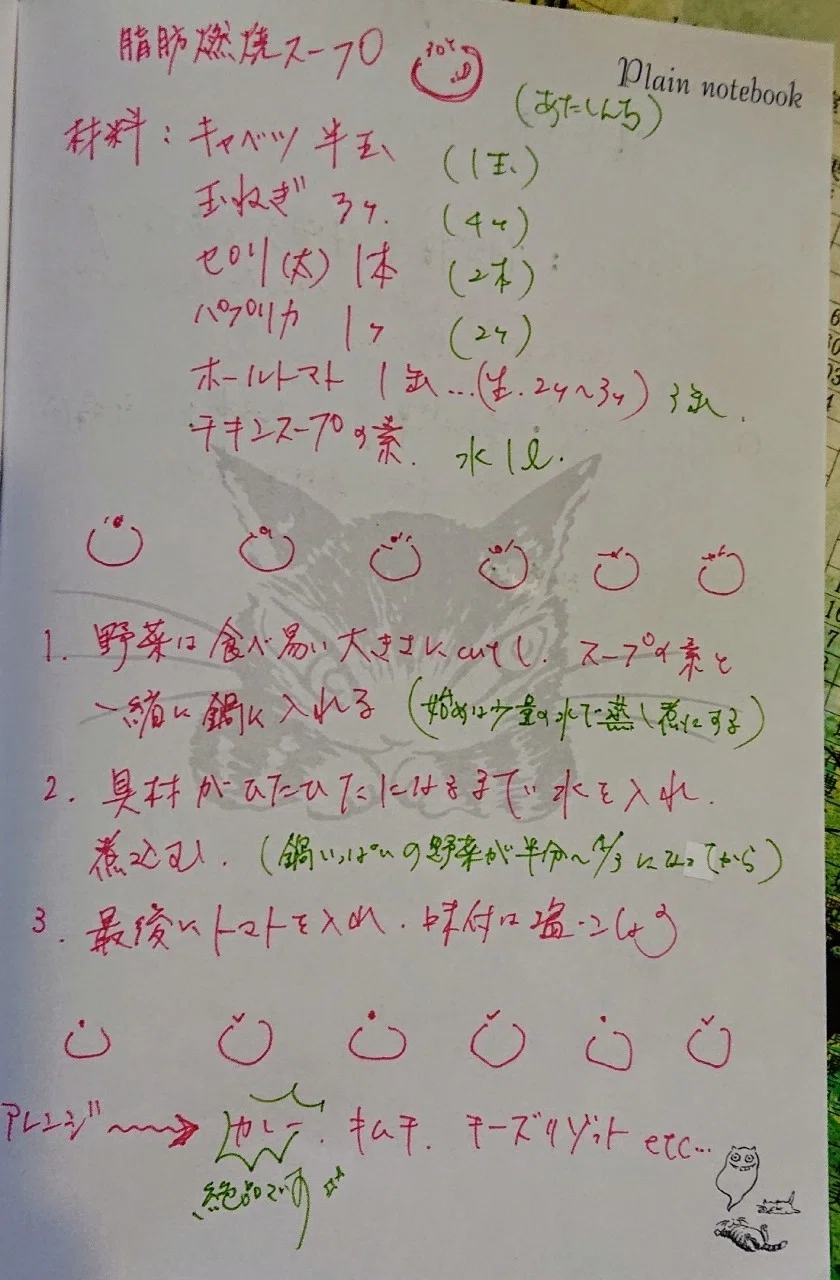 脂肪燃焼スープ
Plain notebook
(あたしんち)
材料：キャベツ 半玉 (1玉)
玉ねぎ 3ヶ. (4ヶ)
セロリ(太) 1本 (2本)
パプリカ 1ヶ (2ヶ)
ホールトマト 1缶…(生.2ヶ〜3ヶ) 3缶.
チキンスープの素. 水1ℓ.
1. 野菜は食べ易い大きさにcutし. スープの素と
一緒に鍋に入れる (始めは少量の水で蒸し煮にする)
2. 具材がひたひたになるまで水を入れ.
煮込む. (鍋いっぱいの野菜が半分〜1/3になってから)
3. 最後にトマトを入れ.味付は塩・こしょう
アレンジ カレー. キムチ. チーズリゾット etc…
絶品です